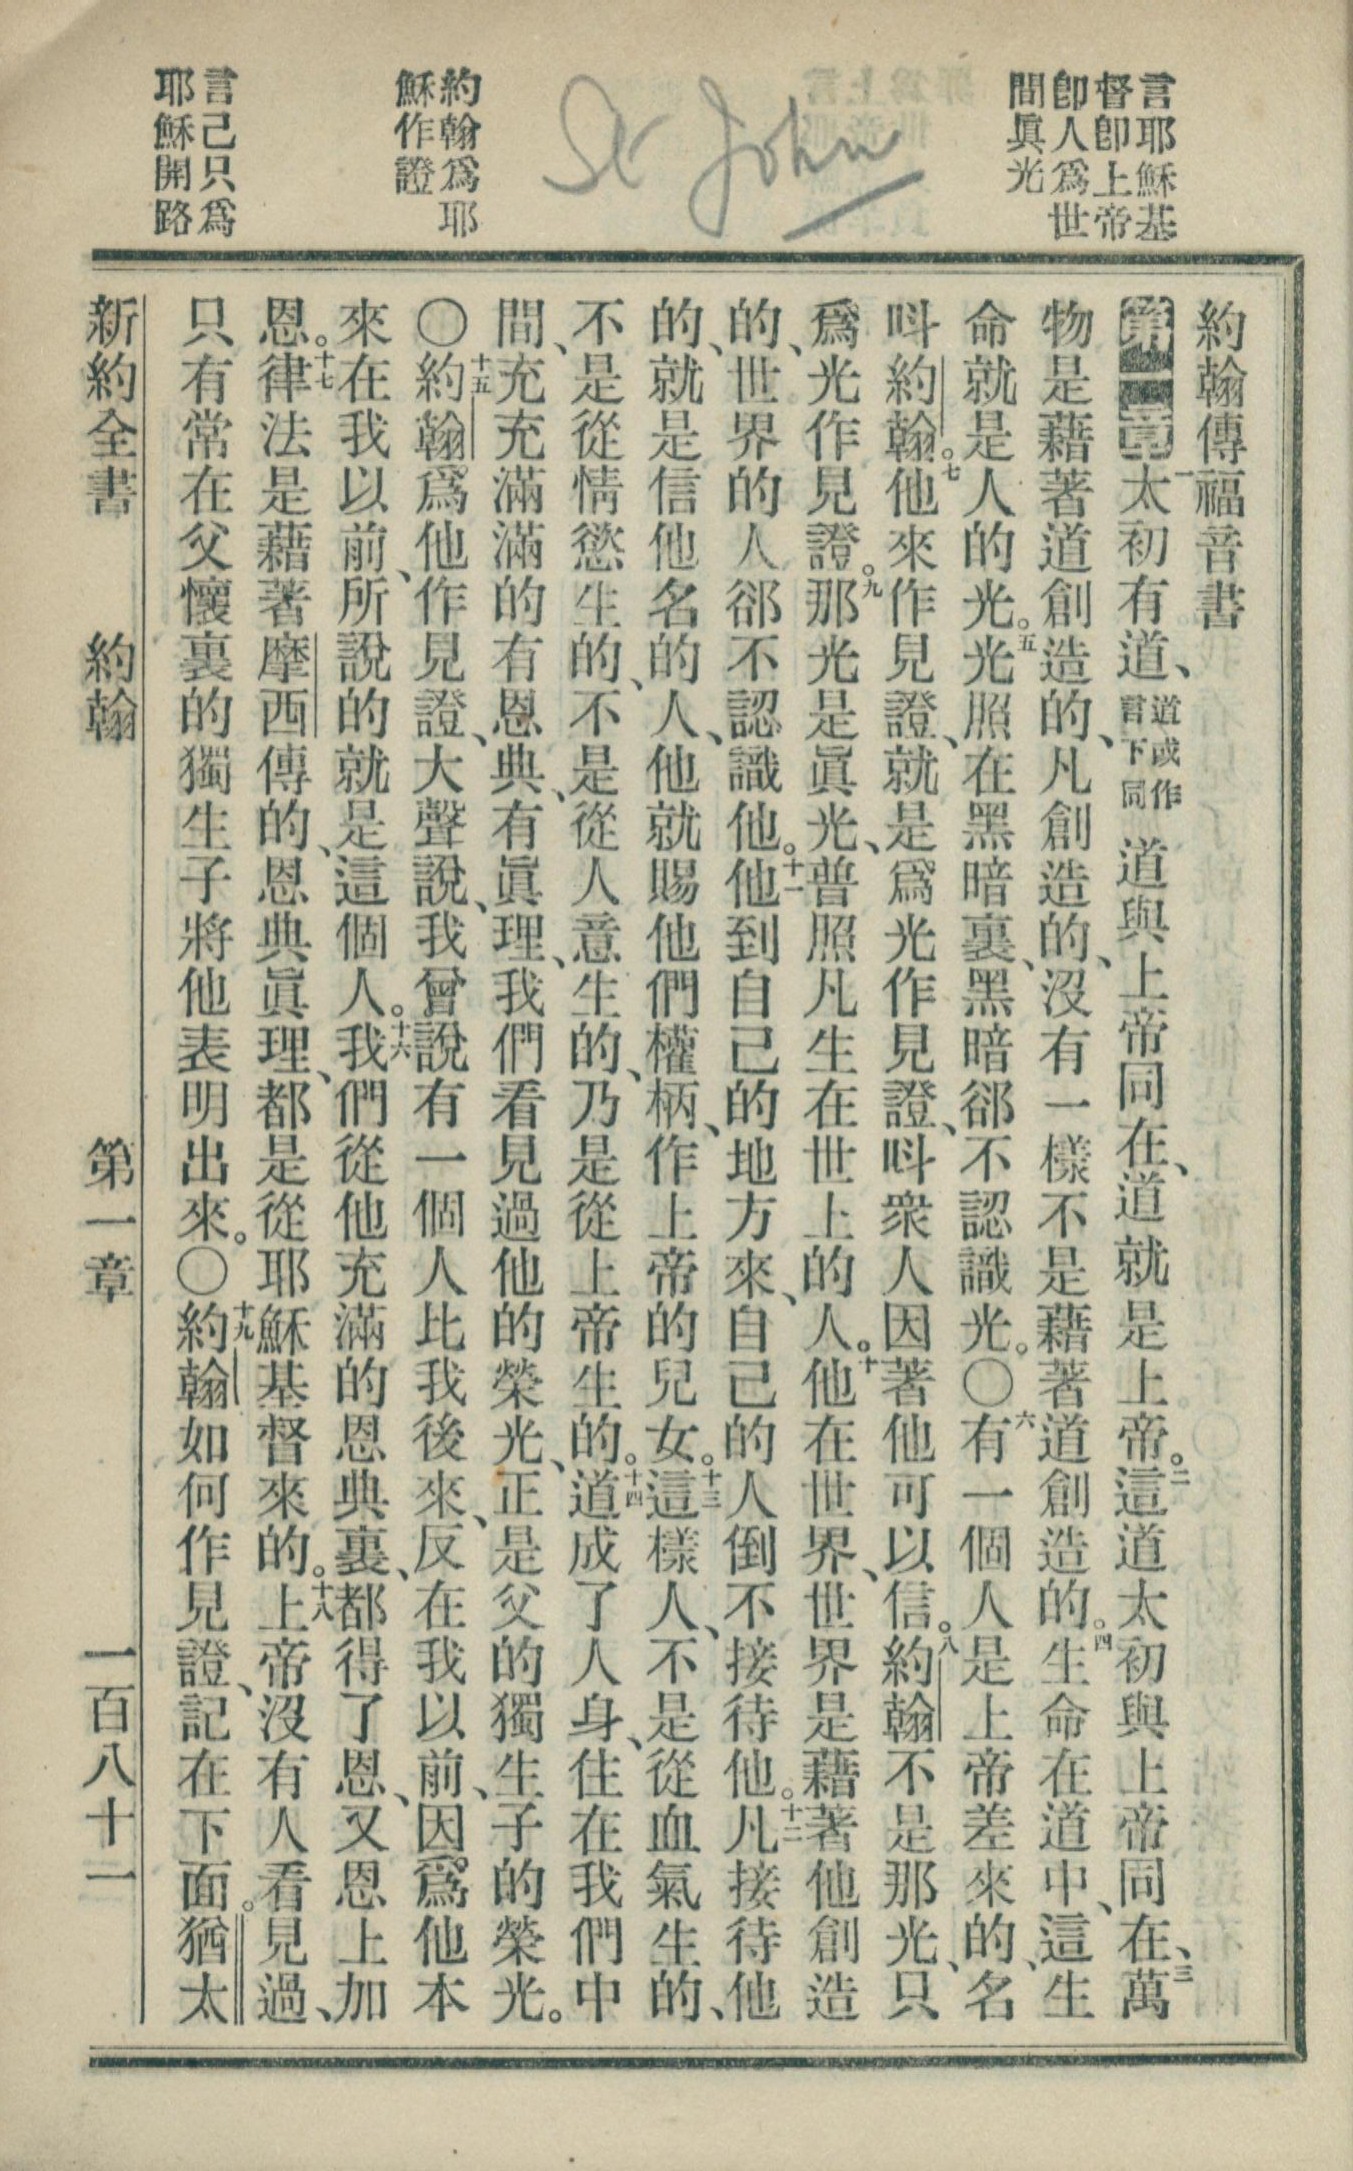 言耶穌基
督卽上帝
卽人爲世
間眞光
St John
約翰爲耶
穌作證
言己只爲
耶穌開路
約翰傳福音書
第一章一太初有道、道或作言下同道與上帝同在、道就是上帝。二這道太初與上帝同在、三萬
物是藉著道創造的、凡創造的、沒有一樣不是藉著道創造的。四生命在道中、這生
命就是人的光。五光照在黑暗裏、黑暗郤不認識光。〇六有一個人是上帝差來的、名
呌約翰。七他來作見證、就是爲光作見證、呌衆人因著他可以信。八約翰不是那光、只
爲光作見證。九那光是眞光、普照凡生在世上的人。十他在世界、世界是藉著他創造
的、世界的人郤不認識他。十一他到自己的地方來、自己的人倒不接待他。十二凡接待他
的、就是信他名的人、他就賜他們權柄、作上帝的兒女。十三這樣人、不是從血氣生的、
不是從情慾生的、不是從人意生的、乃是從上帝生的。十四道成了人身、住在我們中
間、充充滿滿的有恩典、有眞理、我們看見過他的榮光、正是父的獨生子的榮光。
〇十五約翰爲他作見證、大聲說、我曾說有一個人比我後來、反在我以前、因爲他本
來在我以前、所說的就是這個人。十六我們從他充滿的恩典裏、都得了恩、又恩上加
恩。十七律法是藉著摩西傳的、恩典眞理、都是從耶穌基督來的。十八上帝沒有人看見過、
只有常在父懷裏的獨生子將他表明出來。〇十九約翰如何作見證、記在下面。猶太
新約全書 約翰 第一章 一百八十一